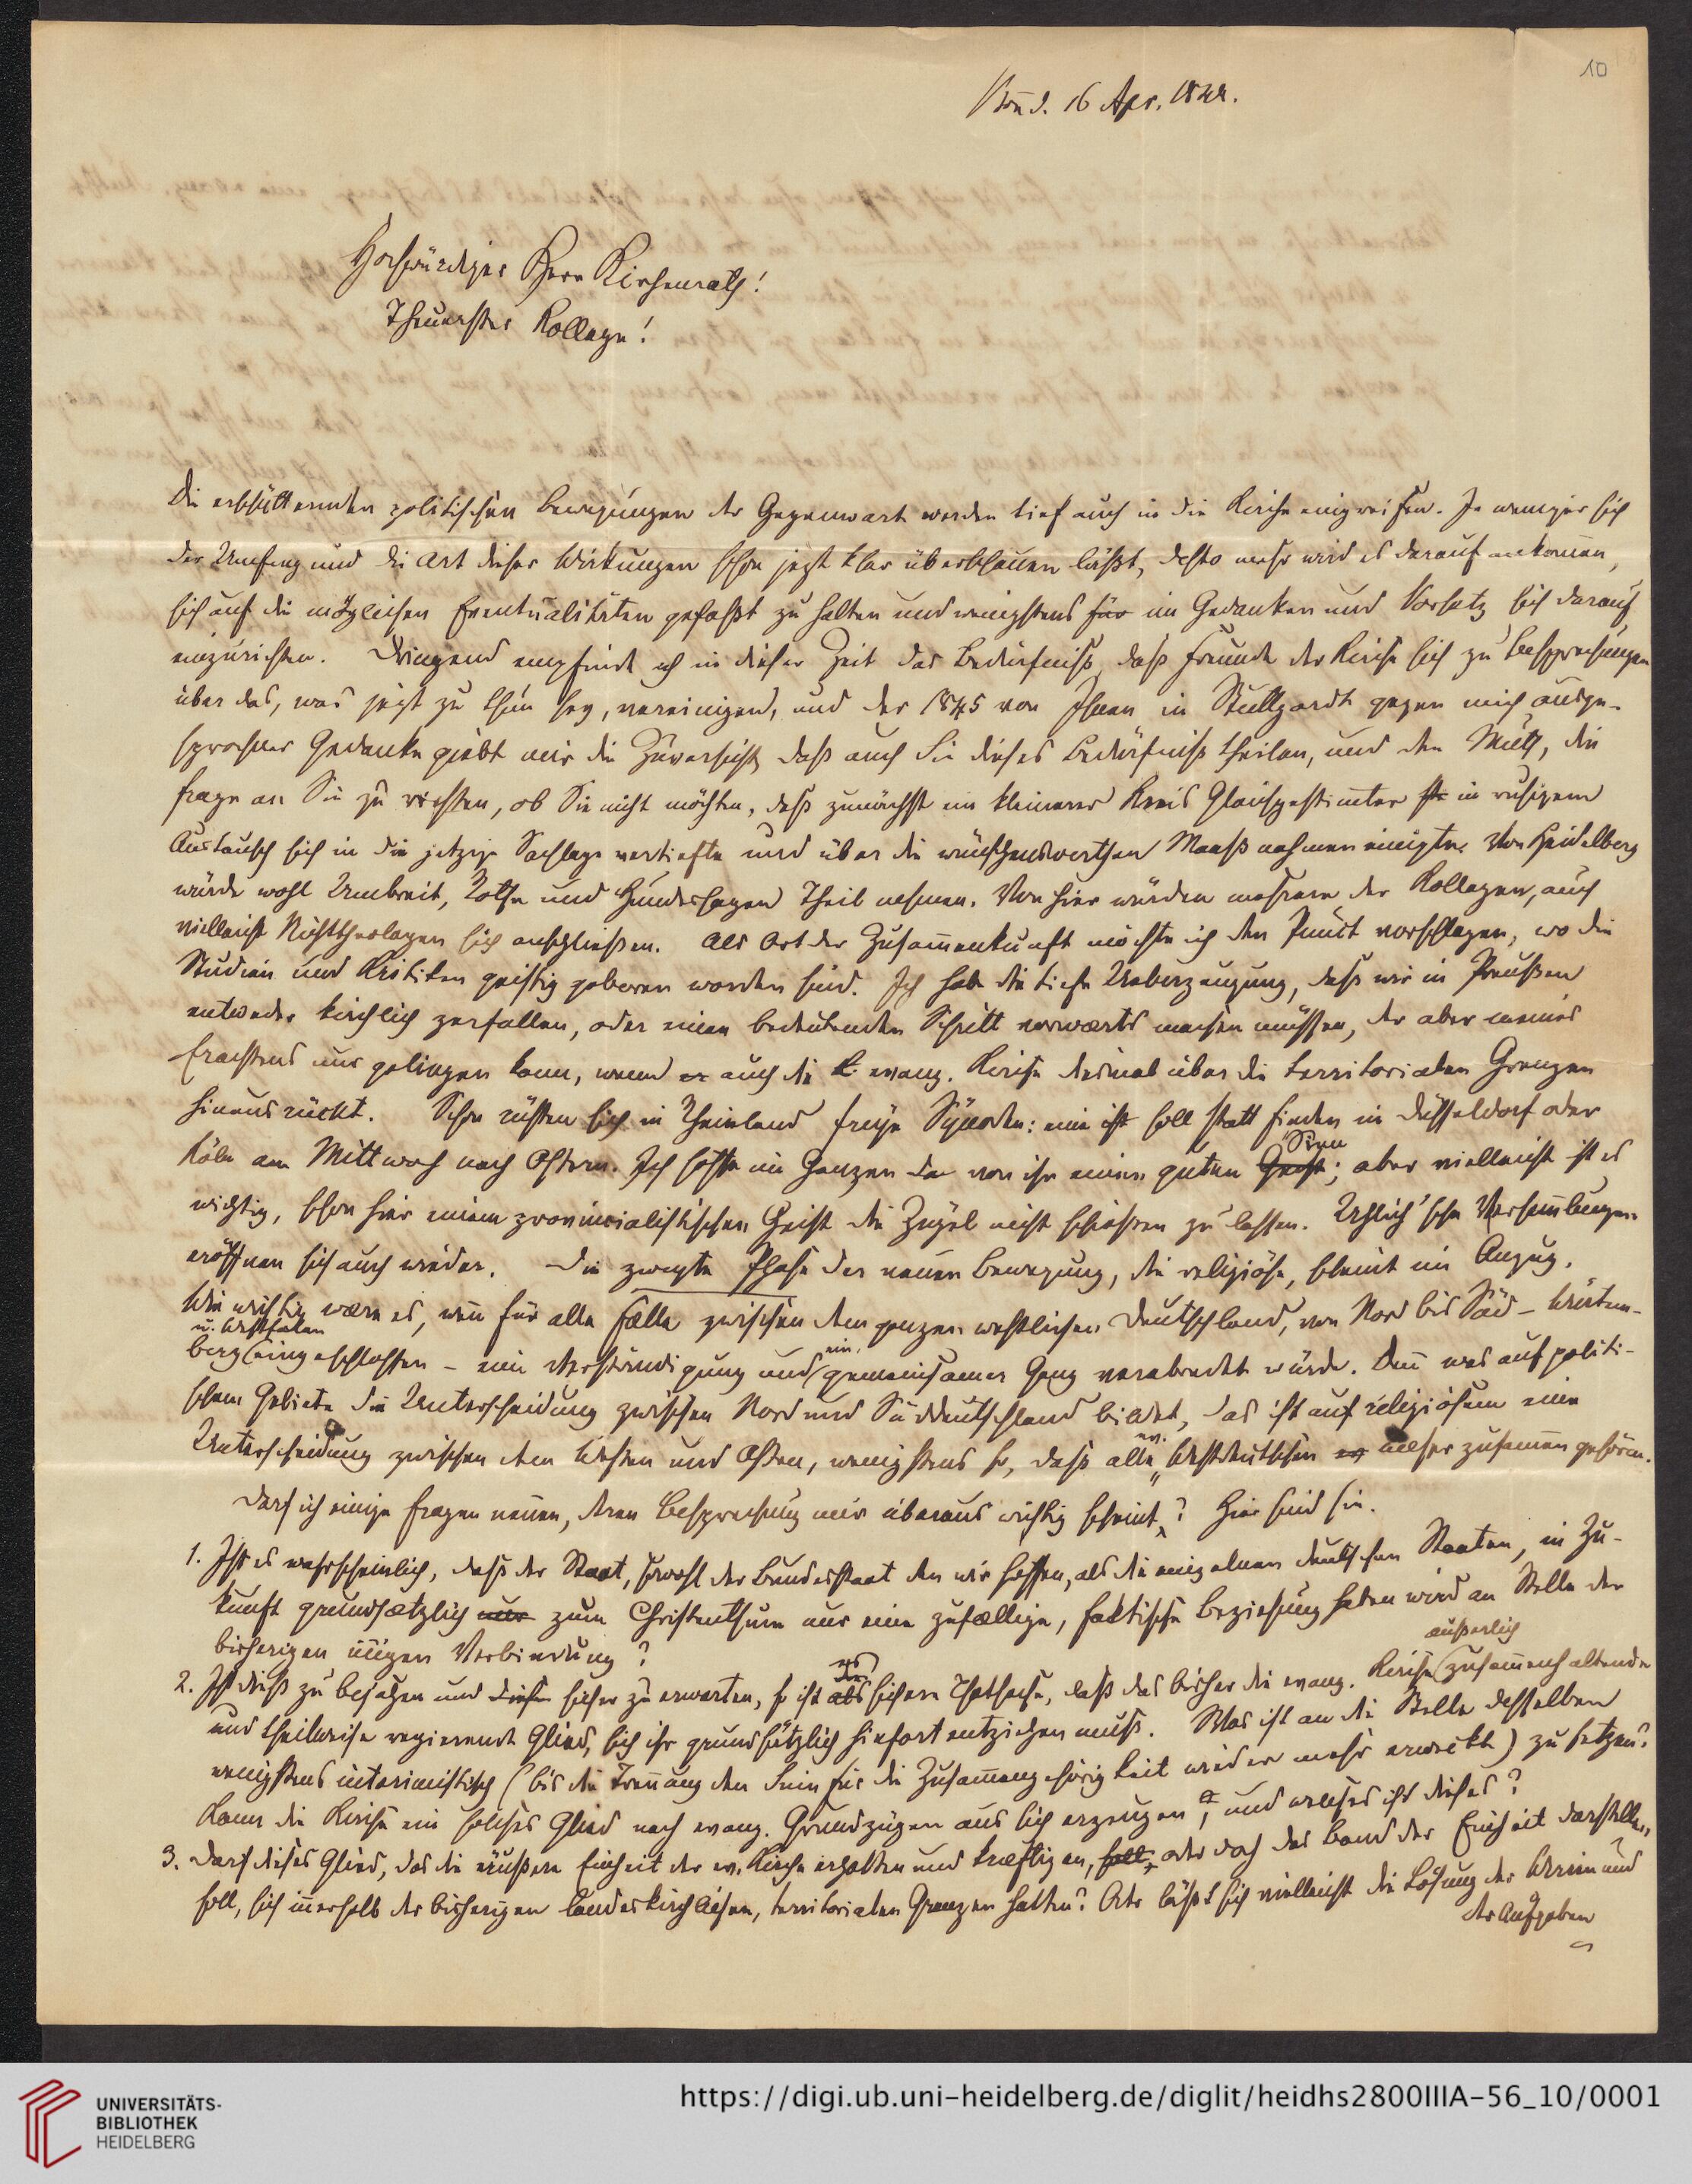 10
Bonn d. 16 Apr. 1848.
Hochwürdiger Herr Kirchenrath!
Theuerster Kollege!
Die erschütternden politischen Bewegungen der Gegenwart werden tief auch in die Kirche eingreifen. Je weniger sich
der Umfang und die Art dieser Wirkungen schon jezt klar überschauen läßt, desto mehr wird es darauf ankommen,
sich auf die möglichen Eventualitäten gefaßt zu halten und wenigstens für im Gedanken und Vorsatz sich darauf
einzurichten. Dringend empfinde ich in dieser Zeit das Bedürfniß, daß Freunde der Kirche sich zu Besprechungen
über das, was jezt zu thun sey, vereinigen, und der 1845 von Ihnen in Stuttgardt gegen mich ausge-
sprochene Gedanke giebt mir die Zuversicht, daß auch Sie dieses Bedürfniß theilen, und den Muth, die
Frage an Sie zu richten, ob Sie nicht möchten, daß zunächst ein kleinerer Kreis Gleichgestimmter in ruhigem
Austausch sich in die jetzige Sachlage vertiefte und über die wünschenswerthen Maaßnahmen einigte. Von Heidelberg
würde wohl Umbreit, Rothe und Hundeshagen Theil nehmen. Von hier würden mehrere der Kollegen, auch
vielleicht Nichttheologen sich anschließen. Als Ort der Zusammenkunft möchte ich den Punct vorschlagen, wo die
Studien und Kritiken geistig geboren worden sind. Ich habe die tiefe Ueberzeugung, daß wir in Preußen
entweder kirchlich zerfallen, oder einen bedeutenden Schritt vorwærts machen müssen, der aber meines
Erachtens nur gelingen kann, wenn er auch die evang. Kirche diesmal über die territorialen Grenzen
hinausrückt. Schon rüsten sich in Rheinland freye Synoden: eine ist soll statt finden in Düsseldorf oder
Köln am Mittwoch nach Ostern. Ich hoffe im Ganzen von ihr einen guten Geist; aber vielleicht ist es
Sinn
wichtig, schon hier einem provincialistischen Geist die Zügel nicht schießen zu lassen. Uhlich'sche Versammlungen
eröffnen sich auch wieder. Die zweyte Phase der neuen Bewegung, die religiöse, scheint im Anzug.
Wie wichtig wære es, wenn für alle Fälle zwischen dem ganzen westlichen Deutschland, von Nord bis Süd – Würtem-
u. Westfalen
berg eingeschlossen – eine Verständigung und ein gemeinsamer Gang verabredet würde. Denn was auf politi-
schem Gebiete die Unterscheidung zwischen Nord und Süddeutschland bildet, das ist auf religiösem eine
Unterscheidung zwischen dem Westen und Osten, wenigstens so, daß alle ev. Westdeutschen näher zusammen gehören.
Darf ich einige Fragen nennen, deren Besprechung mir überaus wichtig scheint? Hier sind sie.
1. Ist es wahrscheinlich, daß der Staat, sowohl der Bundesstaat den wir hoffen, als die einzelnen deutschen Staaten, in Zu-
kunft grundsætzlich nur zum Christenthum nur eine zufællige, faktische Beziehung haben wird an Stelle der
bisherigen innigen Verbindung?
2. Ist dieß zu bejahen und sicher zu erwarten, so ist es sichere Thatsache, daß das bisher die evang. Kirche äußerlich zusammenhaltende
und theilweise regierende Glied, sich ihr grundsätzlich hinfort entziehen muß. Was ist an die Stelle desselben
wenigstens interimistisch (bis die Trennung den Sinn für die Zusammengehörigkeit wieder mehr erweckt) zu setzen?
Kann die Kirche ein solches Glied nach evang. Grundzügen aus sich erzeugen, und welches ist dieses?
3. Darf dieses Glied, das die äußere Einheit der ev. Kirche erhalten und kræftigen, soll, oder doch das Band der Einheit darstellen
soll, sich innerhalb der bisherigen landeskirchlichen, territorialen Grenzen halten? Oder läßt sich vielleicht die Lösung der
der Aufgaben
UNIVERSITÄTS-
BIBLIOTHEK
HEIDELBERG
https://digi.ub.uni-heidelberg.de/diglit/heidhs2800IIIA-56_10/0001